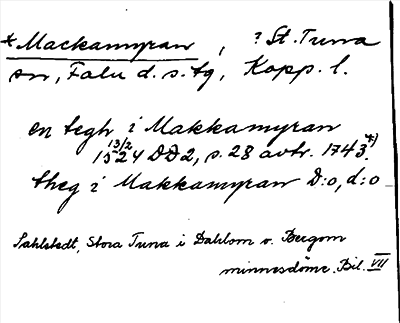 *Mackamyran, ? St. Tuna
sn, Falu d. s. tg, Kopp. l.
en tegh i Makkamyran
13/2 1524 DD2, s. 28 avtr. 1743.*)
theg i Makkamyran D:o, d:o
Sahlstedt, Stora Tuna i Dahlom o. Bergom
minnesdöme. Bil. VII